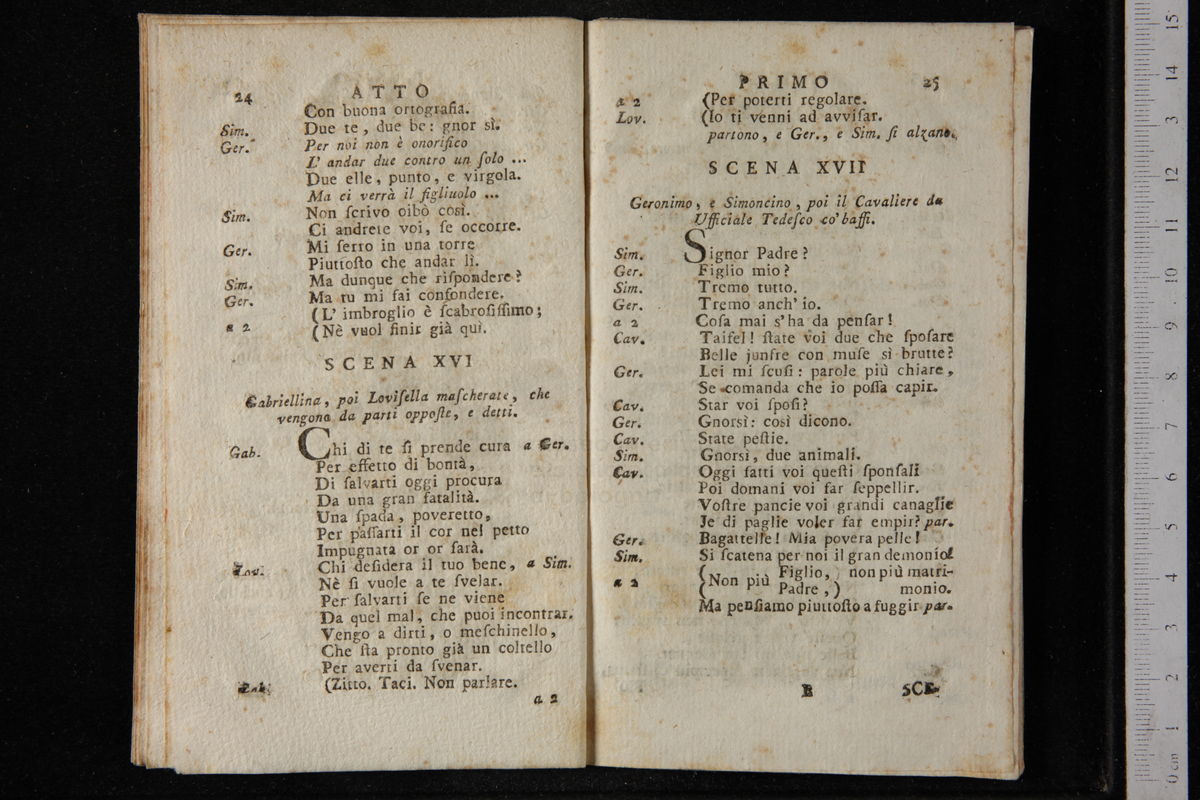 24 ATTO
Con buona ortografia.
Sim. Due te, due be: gnor sì.
Ger. Per noi non è onorifico
L' andar due contro un ſolo ...
Due elle, punto, e virgola.
Ma ci verrà il figliuolo ...
Sim. Non ſcrivo oibò così.
Ci andrete voi, ſe occorre.
Ger. Mi ſerro in una torre
Piuttoſto che andar lì.
Sim. Ma dunque che riſpondere?
Ger. Ma tu mi fai confondere.
a 2 (L' imbroglio è ſcabroſiſſimo;
(Nè vuol finir già quì.
SCENA XVI
Gabriellina, poi Loviſella maſcherate, che
vengono da parti oppoſte, e detti.
Gab. Chi di te ſi prende cura a Ger.
Per effetto di bontà,
Di ſalvarti oggi procura
Da una gran fatalità.
Una ſpada, poveretto,
Per paſſarti il cor nel petto
Impugnata or or farà.
Lov. Chi deſidera il tuo bene, a Sim.
Nè ſi vuole a te ſvelar.
Per ſalvarti ſe ne viene
Da quel mal, che puoi incontrar.
Vengo a dirti, o meſchinello,
Che ſta pronto già un coltello
Per averti da ſvenar.
(Zitto. Taci. Non parlare.
a 2
PRIMO 25
a 2 (Per poterti regolare.
Lov. (Io ti venni ad avviſar.
partono, e Ger., e Sim. ſi alzano.
SCENA XVII
Geronimo, e Simoncino, poi il Cavaliere da
Ufficiale Tedeſco co' baffi.
Sim. Signor Padre?
Ger. Figlio mio?
Sim. Tremo tutto.
Ger. Tremo anch' io.
a 2 Coſa mai s'ha da penſar!
Cav. Taifel! ſtate voi due che ſpoſare
Belle junfre con muſe sì brutte?
Ger. Lei mi ſcuſi: parole più chiare,
Se comanda che io poſſa capir.
Cav. Star voi ſpoſi?
Ger. Gnorsì: così dicono.
Cav. State peſtie.
Sim. Gnorsì, due animali.
Cav. Oggi fatti voi queſti ſponſali
Poi domani voi far ſeppellir.
Voſtre pancie voi grandi canaglie
Je di paglie voler far empir? par.
Ger. Bagattelle! Mia povera pelle!
Sim. Si ſcatena per noi il gran demonio!
a 2 (Non più Figlio,) non più matri-
( Padre,) monio.
Ma penſiamo piuttoſto a fuggir par.
B SCE-